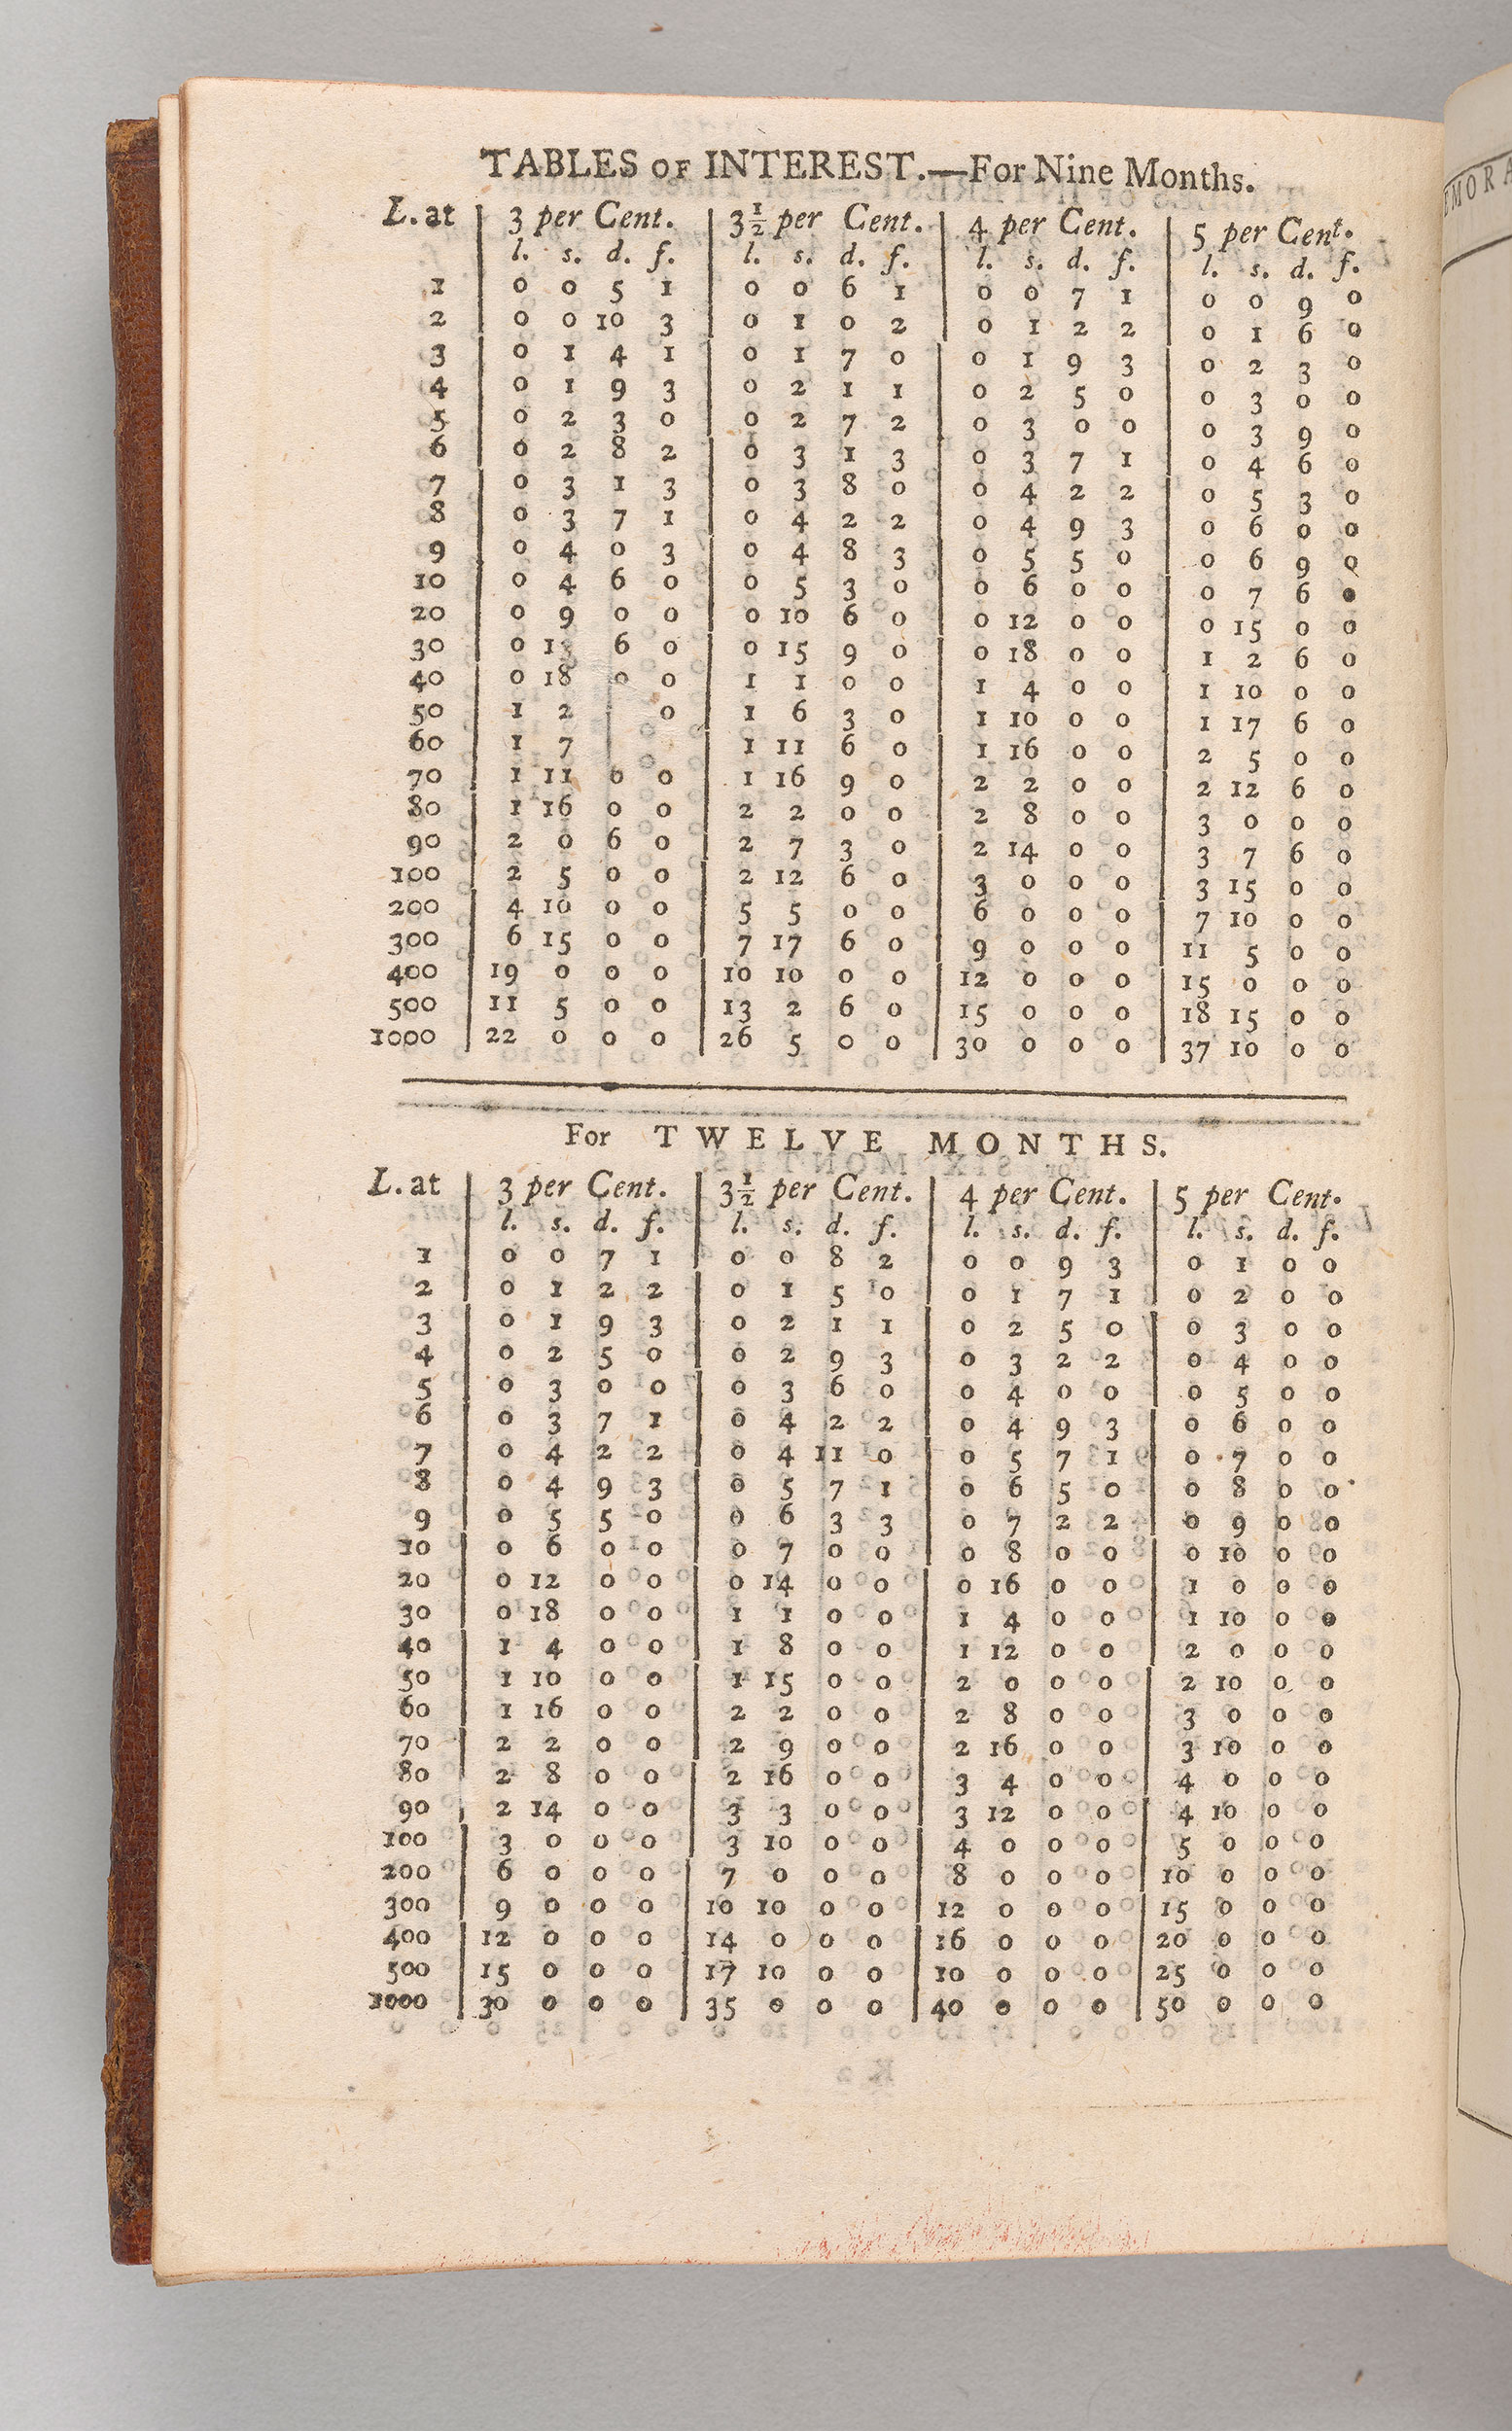 TABLES OF INTEREST.—For Nine Months.
L. at 3 per Cent. 3½ per Cent. 4 per Cent. 5 per Cent.
l. s. d. f. l. s. d. f. l. s. d. f. l. s. d. f.
1 0 0 5 1 0 0 6 1 0 0 7 1 0 0 9 0
2 0 0 10 3 0 1 0 2 0 1 2 2 0 1 6 0
3 0 1 4 1 0 1 7 0 0 1 9 3 0 2 3 0
4 0 1 9 3 0 2 1 1 0 2 5 0 0 3 0 0
5 0 2 3 0 0 2 7 2 0 3 0 0 0 3 9 0
6 0 2 8 2 0 3 1 3 0 3 7 1 0 4 6 0
7 0 3 1 3 0 3 8 0 0 4 2 2 0 5 3 0
8 0 3 7 1 0 4 2 2 0 4 9 3 0 6 0 0
9 0 4 0 3 0 4 8 3 0 5 5 0 0 6 9 0
10 0 4 6 0 0 5 3 0 0 6 0 0 0 7 6 0
20 0 9 0 0 0 10 6 0 0 12 0 0 0 15 0 0
30 0 13 6 0 0 15 9 0 0 18 0 0 1 2 6 0
40 0 18 0 0 1 1 0 0 1 4 0 0 1 10 0 0
50 1 2 0 1 6 3 0 1 10 0 0 1 17 6 0
60 1 7 1 11 6 0 1 16 0 0 2 5 0 0
70 1 11 6 0 1 16 9 0 2 2 0 0 2 12 6 0
80 1 16 0 0 2 2 0 0 2 8 0 0 3 0 0 0
90 2 0 6 0 2 7 3 0 2 14 0 0 3 7 6 0
100 2 5 0 0 2 12 6 0 3 0 0 0 3 15 0 0
200 4 10 0 0 5 5 0 0 6 0 0 0 7 10 0 0
300 6 15 0 0 7 17 6 0 9 0 0 0 11 5 0 0
400 19 0 0 0 10 10 0 0 12 0 0 0 15 0 0 0
500 11 5 0 0 13 2 6 0 15 0 0 0 18 15 0 0
1000 22 0 0 0 26 5 0 0 30 0 0 0 37 10 0 0
For TWELVE MONTHS.
L. at 3 per Cent. 3½ per Cent. 4 per Cent. 5 per Cent.
l. s. d. f. l. s. d. f. l. s. d. f. l. s. d. f.
1 0 0 7 1 0 0 8 2 0 0 9 3 0 1 0 0
2 0 1 2 2 0 1 5 0 0 1 7 1 0 2 0 0
3 0 1 9 3 0 2 1 1 0 2 5 0 0 3 0 0
4 0 2 5 0 0 2 9 3 0 3 2 2 0 4 0 0
5 0 3 0 0 0 3 6 0 0 4 0 0 0 5 0 0
6 0 3 7 1 0 4 2 2 0 4 9 3 0 6 0 0
7 0 4 2 2 0 4 11 0 0 5 7 1 0 7 0 0
8 0 4 9 3 0 5 7 1 0 6 5 0 0 8 0 0
9 0 5 5 0 0 6 3 3 0 7 2 2 0 9 0 0
10 0 6 0 0 0 7 0 0 0 8 0 0 0 10 0 0
20 0 12 0 0 0 14 0 0 0 16 0 0 1 0 0 0
30 0 18 0 0 1 1 0 0 1 4 0 0 1 10 0 0
40 1 4 0 0 1 8 0 0 1 12 0 0 2 0 0 0
50 1 10 0 0 1 15 0 0 2 0 0 0 2 10 0 0
60 1 16 0 0 2 2 0 0 2 8 0 0 3 0 0 0
70 2 2 0 0 2 9 0 0 2 16 0 0 3 10 0 0
80 2 8 0 0 2 16 0 0 3 4 0 0 4 0 0 0
90 2 14 0 0 3 3 0 0 3 12 0 0 4 10 0 0
100 3 0 0 0 3 10 0 0 4 0 0 0 5 0 0 0
200 6 0 0 0 7 0 0 0 8 0 0 0 10 0 0 0
300 9 0 0 0 10 10 0 0 12 0 0 0 15 0 0 0
400 12 0 0 0 14 0 0 0 16 0 0 0 20 0 0 0
500 15 0 0 0 17 10 0 0 10 0 0 0 25 0 0 0
1000 30 0 0 0 35 0 0 0 40 0 0 0 50 0 0 0